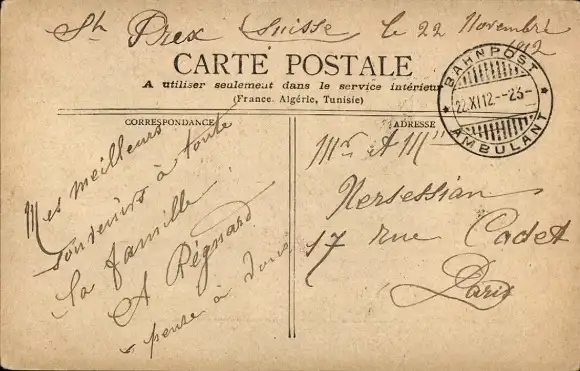 St Prex (Suisse) le 22 Novembre
1912
CARTE POSTALE
A utiliser seulement dans le service intérieur
(France, Algérie, Tunisie)
BAHNPOST
22.XI.12.-23-
AMBULANT
CORRESPONDANCE
Mes meilleurs
souvenirs à toute
la famille.
A Régnard
pense à vous
ADRESSE
Mr et Mme
Nersessian
17 rue Cadet
Paris